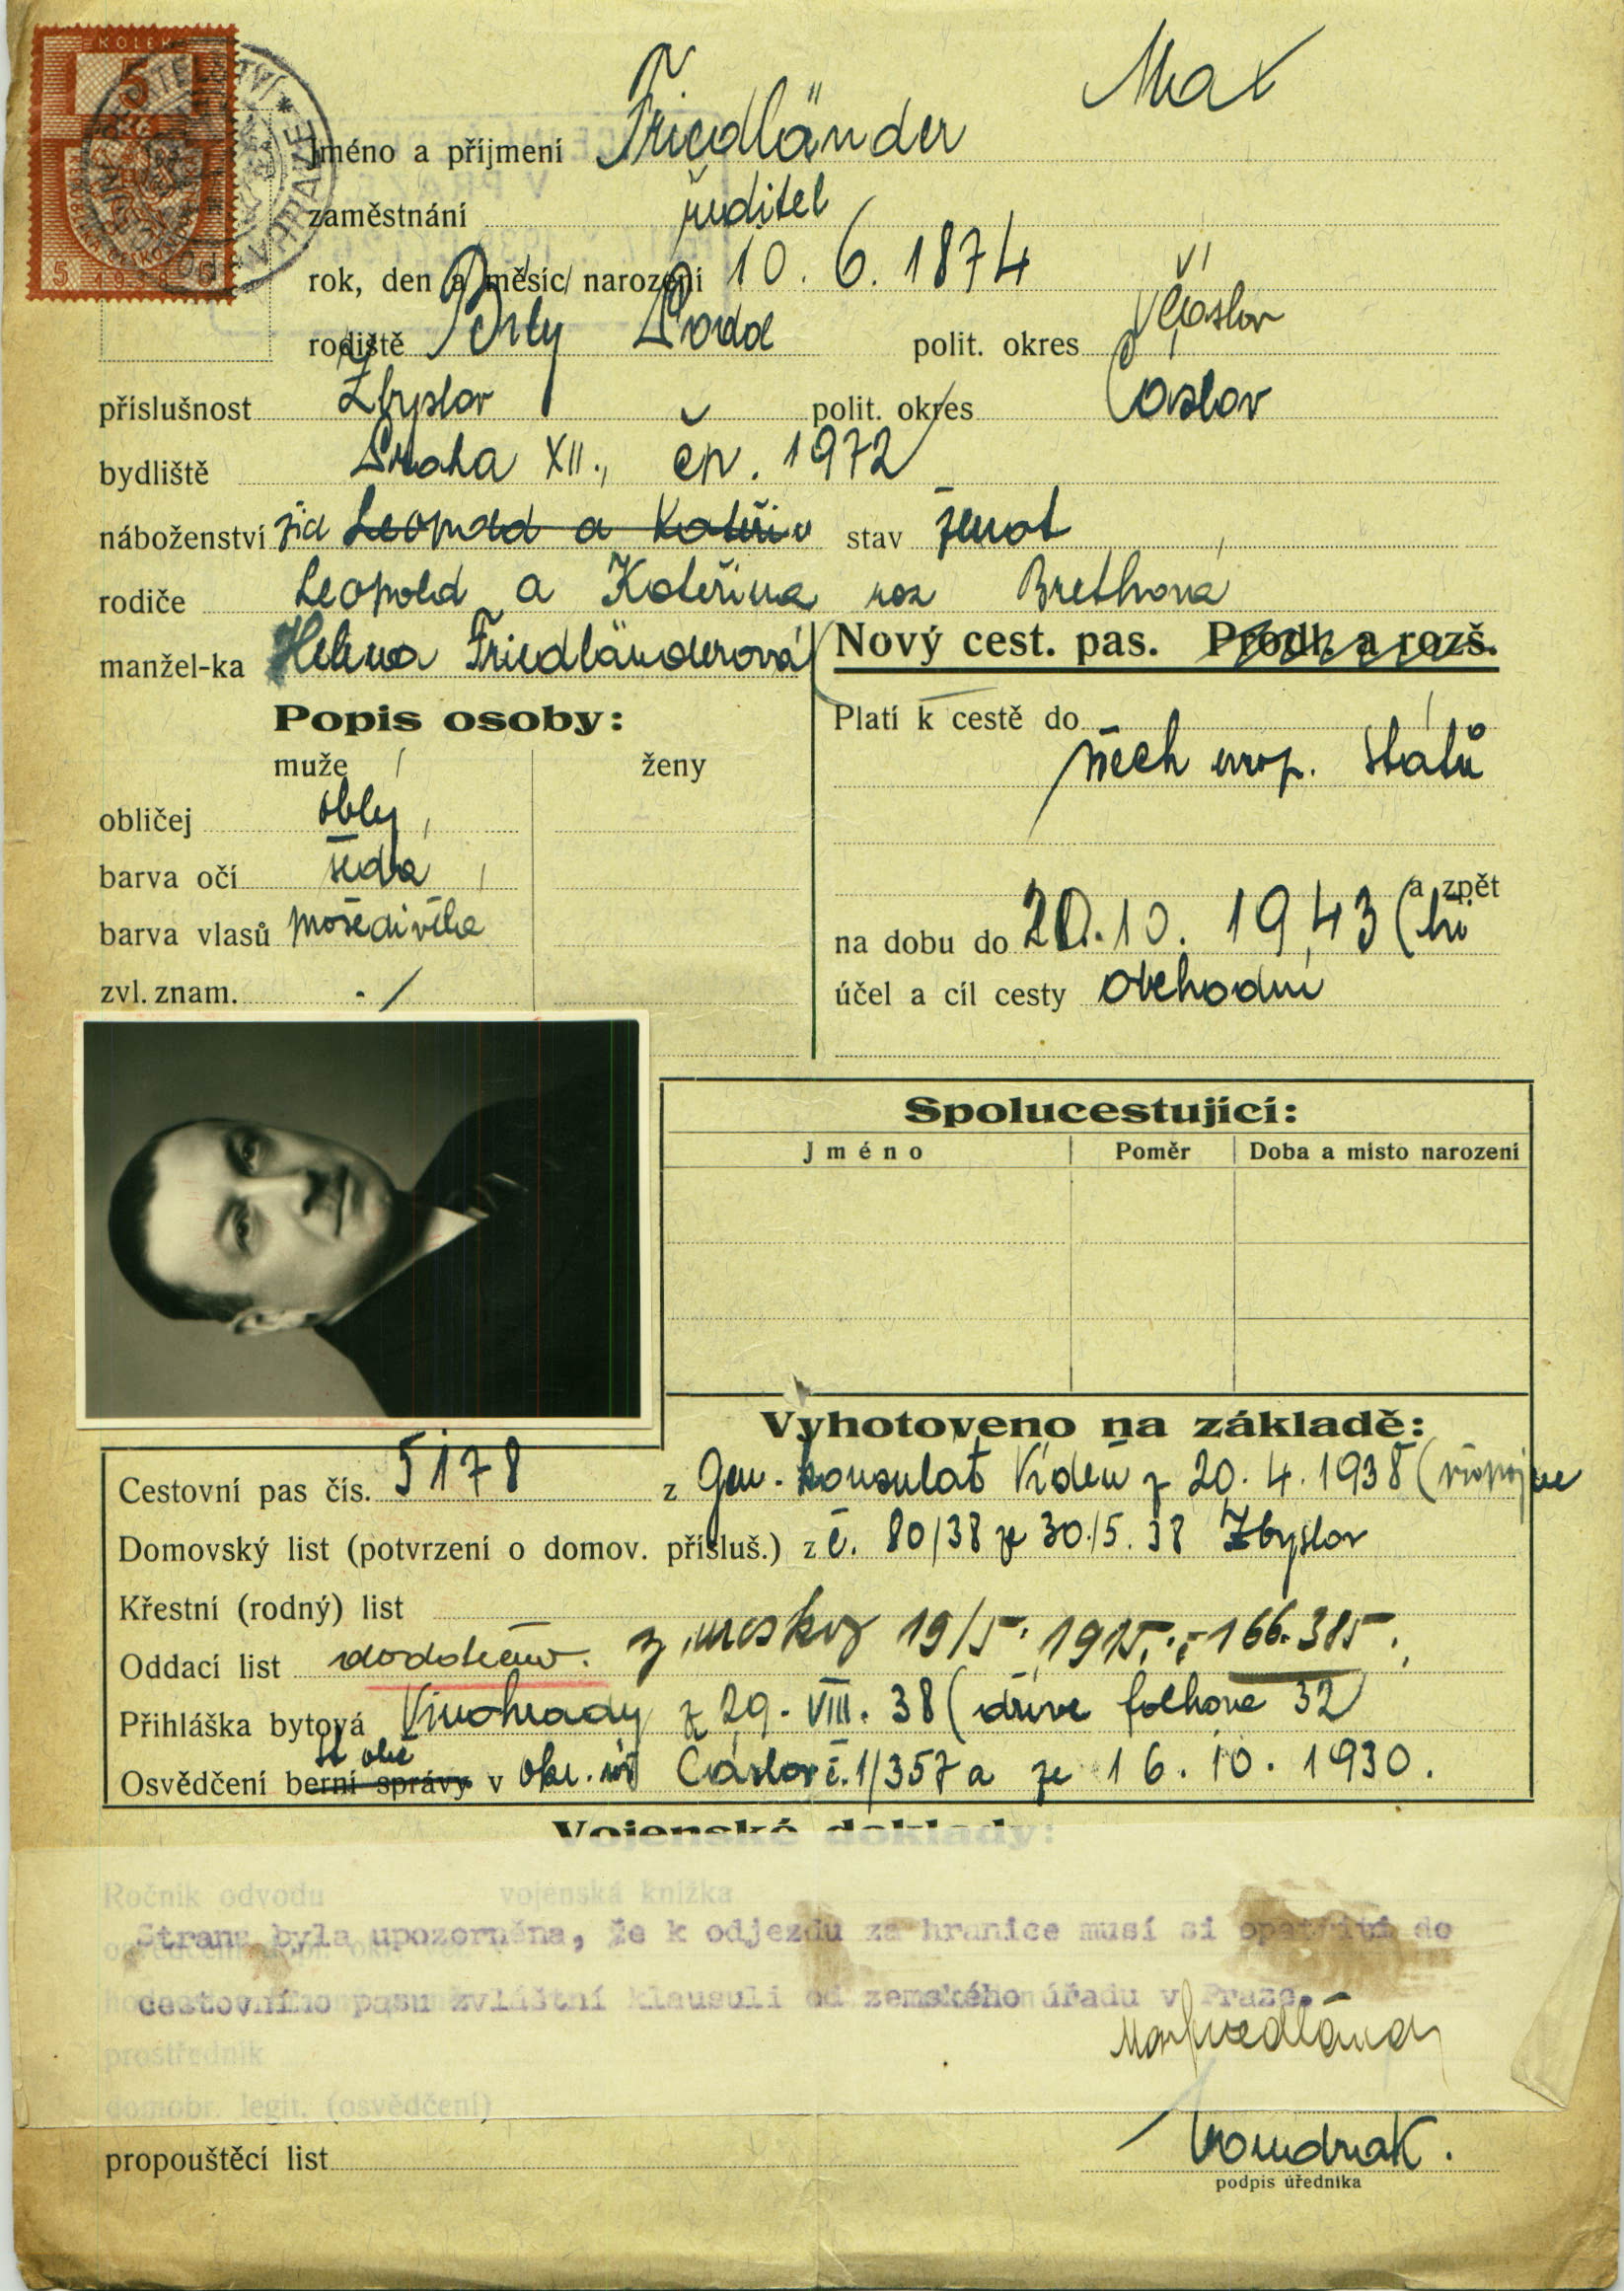 KOLEK
5
5 1938 5
Max
Jméno a příjmení Friedländer
zaměstnání ředitel
rok, den a měsíc narození 10. 6. 1874
rodiště polit. okres
příslušnost Zbyslav polit. okres Čáslav
bydliště Praha XII., čp. 1972
náboženství žid Leopold a Kateřin stav ženat
rodiče Leopold a Kateřina roz Brethová
manžel-ka Helena Friedländerová
Nový cest. pas. Prodl. a rozš.
Popis osoby:
muže ženy
obličej oblý
barva očí šedá
barva vlasů prošedivělé
zvl. znam. ./
Platí k cestě do
všech evrop. států
a zpět
na dobu do 20.10. 1943 (tři
účel a cíl cesty obchodní
Spolucestující:
Jméno Poměr Doba a místo narození
Vyhotoveno na základě:
Cestovní pas čís. 5178 z Gen. konsulát Vídeň z 20. 4. 1938 (
Domovský list (potvrzení o domov. přísluš.) z č. 80/38 ze 30./5. 38 Zbyslav
Křestní (rodný) list
Oddací list z 19/5. 1915
Přihláška bytová Vinohrady z 29. VIII. 38 (dříve Fochova 32)
st. obč
Osvědčení berní správy v okr. úř Čáslav č. 1/357a ze 16. 10. 1930.
Vojenské doklady:
Ročník odvodu vojenská knížka
Strana byla upozorněna, že k odjezdu za hranice musí si opatřiti do
cestovního pasu zvláštní klausuli od zemského úřadu v Praze.
prostředník
domobr. legit. (osvědčení)
Max Friedländer
propouštěcí list
podpis úředníka